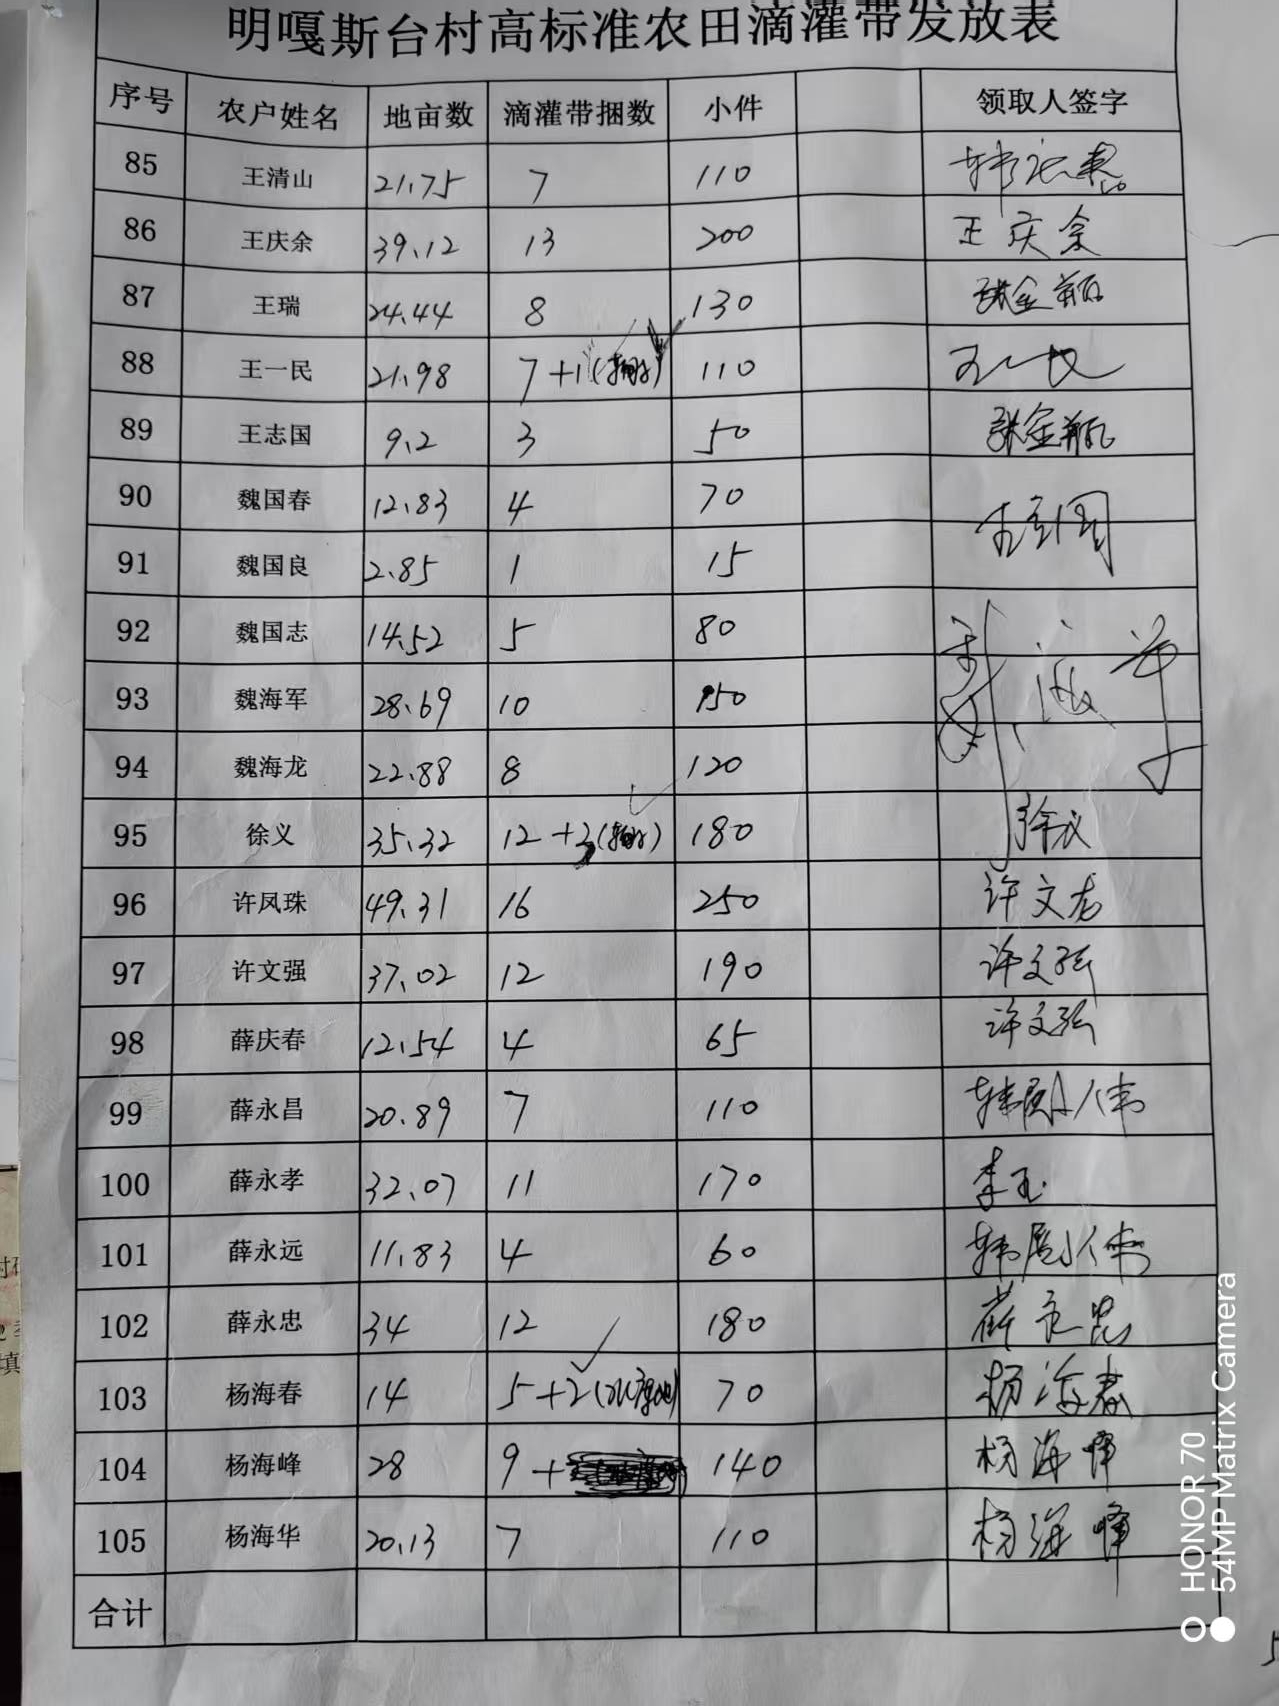 明嘎斯台村高标准农田滴灌带发放表
序号 农户姓名 地亩数 滴灌带捆数 小件 领取人签字
85 王清山 21.75 7 110
86 王庆余 39.12 13 200 王庆余
87 王瑞 24.44 8 130
88 王一民 21.98 7+1 110 王一民
89 王志国 9.2 3 50
90 魏国春 12.83 4 70
91 魏国良 2.85 1 15
92 魏国志 14.52 5 80
93 魏海军 28.69 10 150
94 魏海龙 22.88 8 120
95 徐义 35.32 12+3 180 徐义
96 许凤珠 49.31 16 250 许文龙
97 许文强 37.02 12 190 许文强
98 薛庆春 12.54 4 65 许文强
99 薛永昌 20.89 7 110
100 薛永孝 32.07 11 170 李玉
101 薛永远 11.83 4 60
102 薛永忠 34 12 180 薛永忠
103 杨海春 14 5+2 70 杨海春
104 杨海峰 28 9+ 140 杨海峰
105 杨海华 20.13 7 110 杨海峰
合计
HONOR 70
54MP Matrix Camera